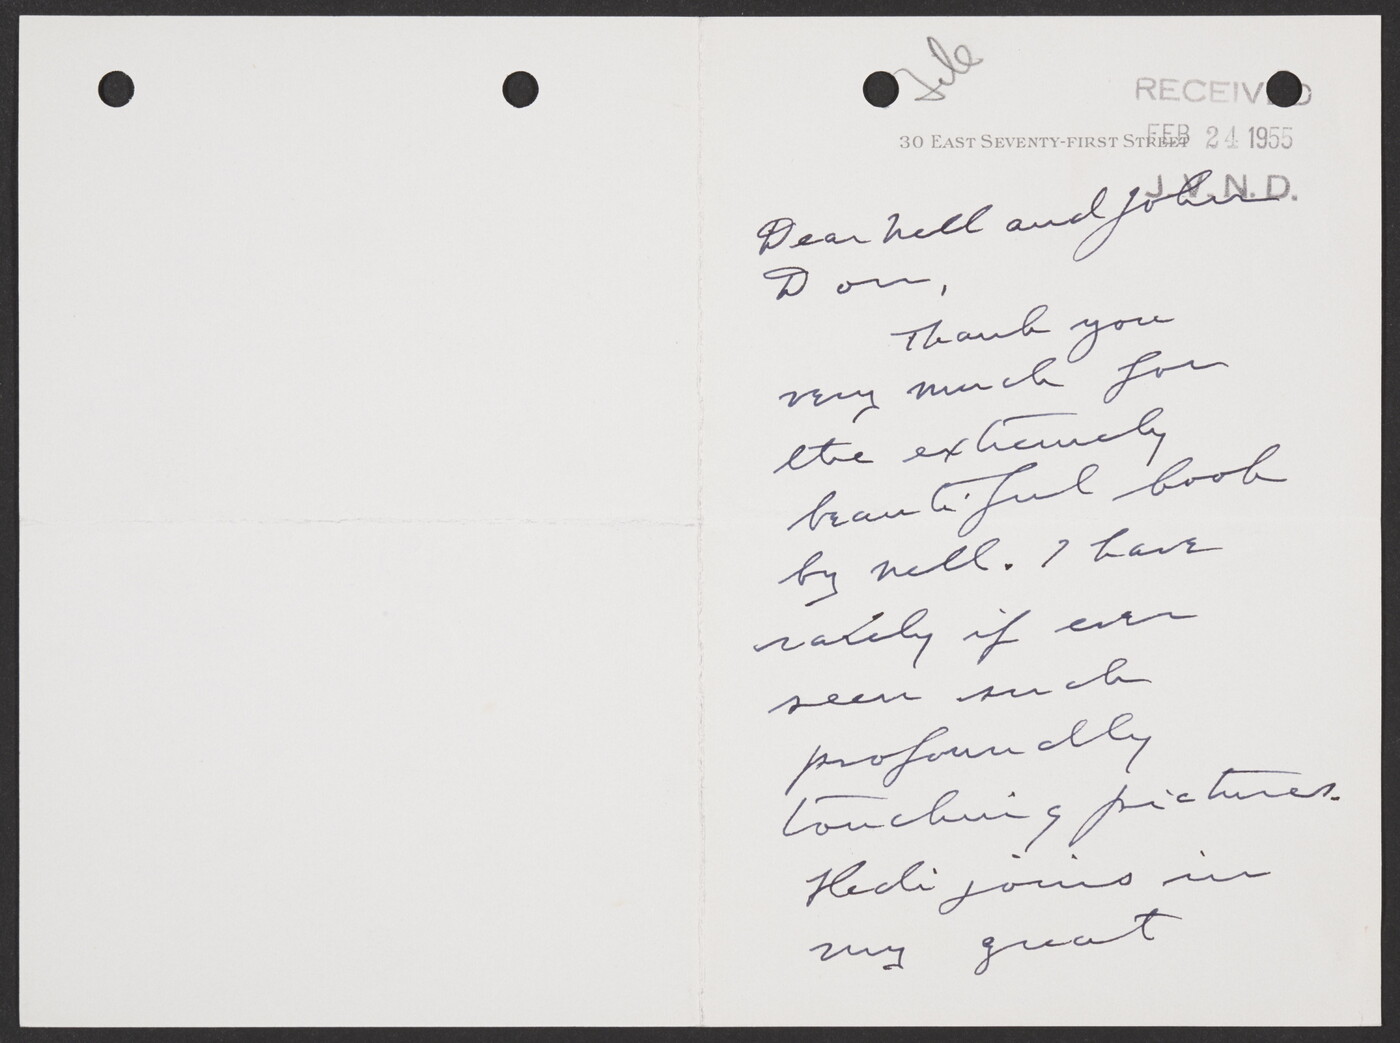 File
RECEIVED
30 EAST SEVENTY-FIRST STREET
FEB 24 1955
J.V.N.D.
Dear Nell and John
Dorr,
Thank you
very much for
the extremely
beautiful book
by Nell. I have
rarely if ever
seen such
profoundly
touching pictures.
Hedi joins in
my great